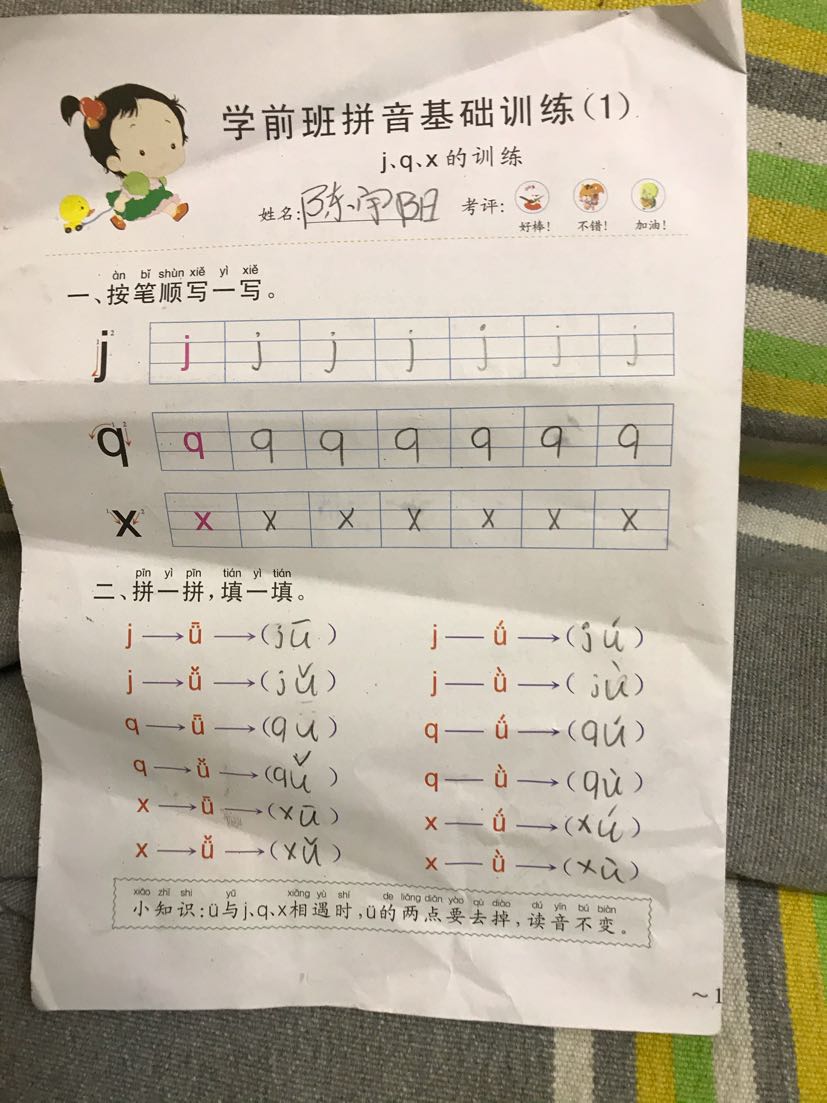 学前班拼音基础训练(1)
j、q、x的训练
姓名:陈宇阳 考评: 好棒! 不错! 加油!
àn bǐ shùn xiě yì xiě
一、按笔顺写一写。
j j j j j j j j
q q q q q q q q
x x x x x x x x
pīn yì pīn tián yì tián
二、拼一拼,填一填。
j→ǖ→(jū) j—ǘ→(jú)
j→ǚ→(jǔ) j—ǜ→(jù)
q→ǖ→(qū) q—ǘ→(qú)
q→ǚ→(qǔ) q—ǜ→(qù)
x→ǖ→(xū) x—ǘ→(xú)
x→ǚ→(xǔ) x—ǜ→(xù)
xiǎo zhī shi yǔ xiāng yù shí de liǎng diǎn yào qù diào dú yīn bú biàn
小知识:ü与j、q、x相遇时,ü的两点要去掉,读音不变。
~1